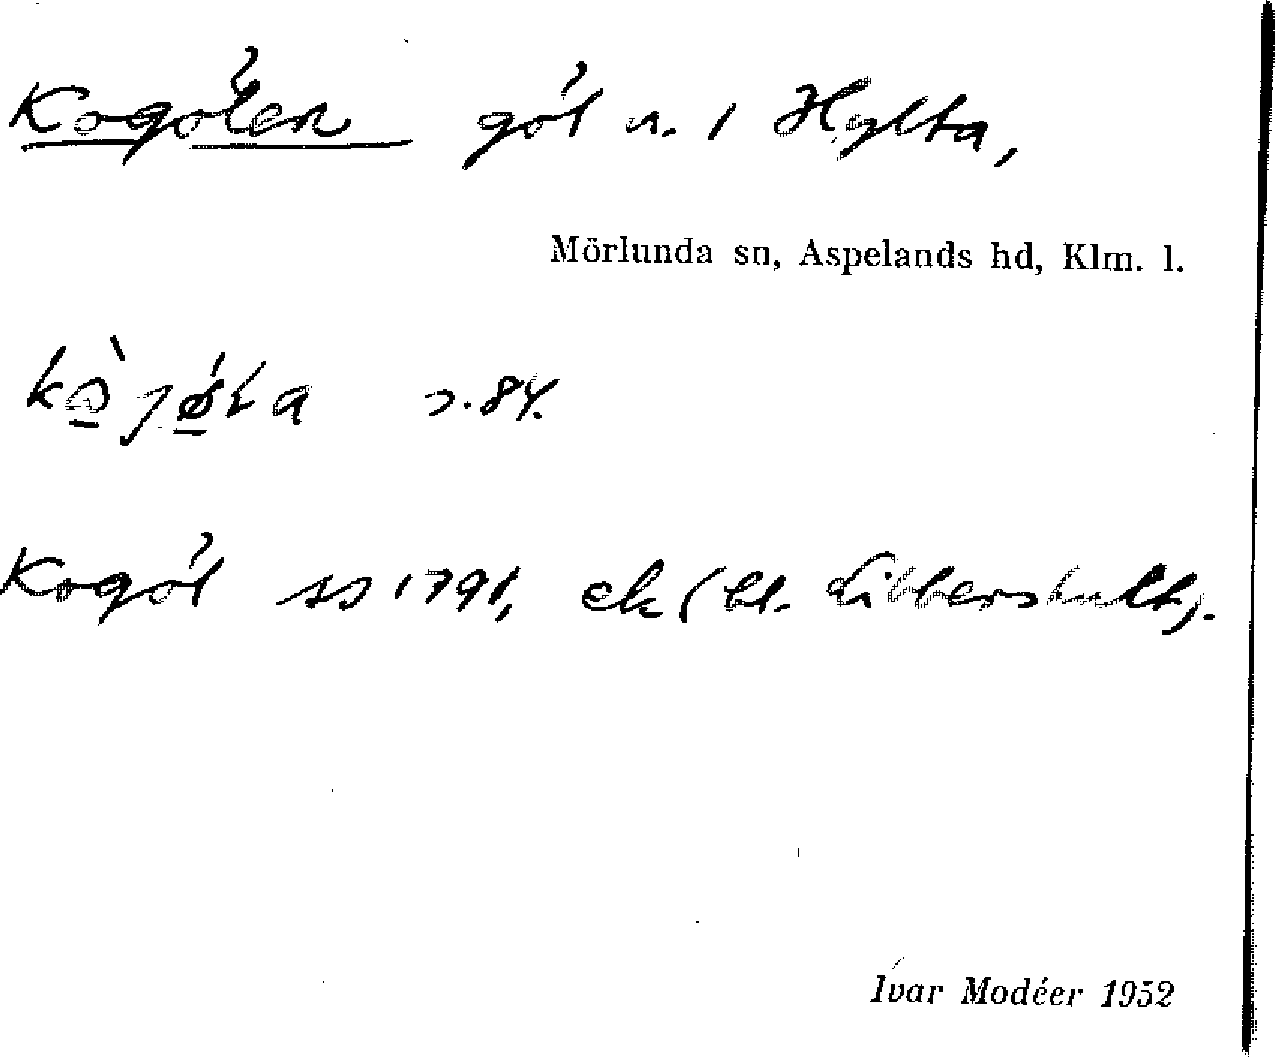 Kogölen göl n. 1 Hylta,
Mörlunda sn, Aspelands hd, Klm. l.
s. 84.
Kogöl ss 1791, ek (bl. Libbershult).
Ívar Modéer 1952